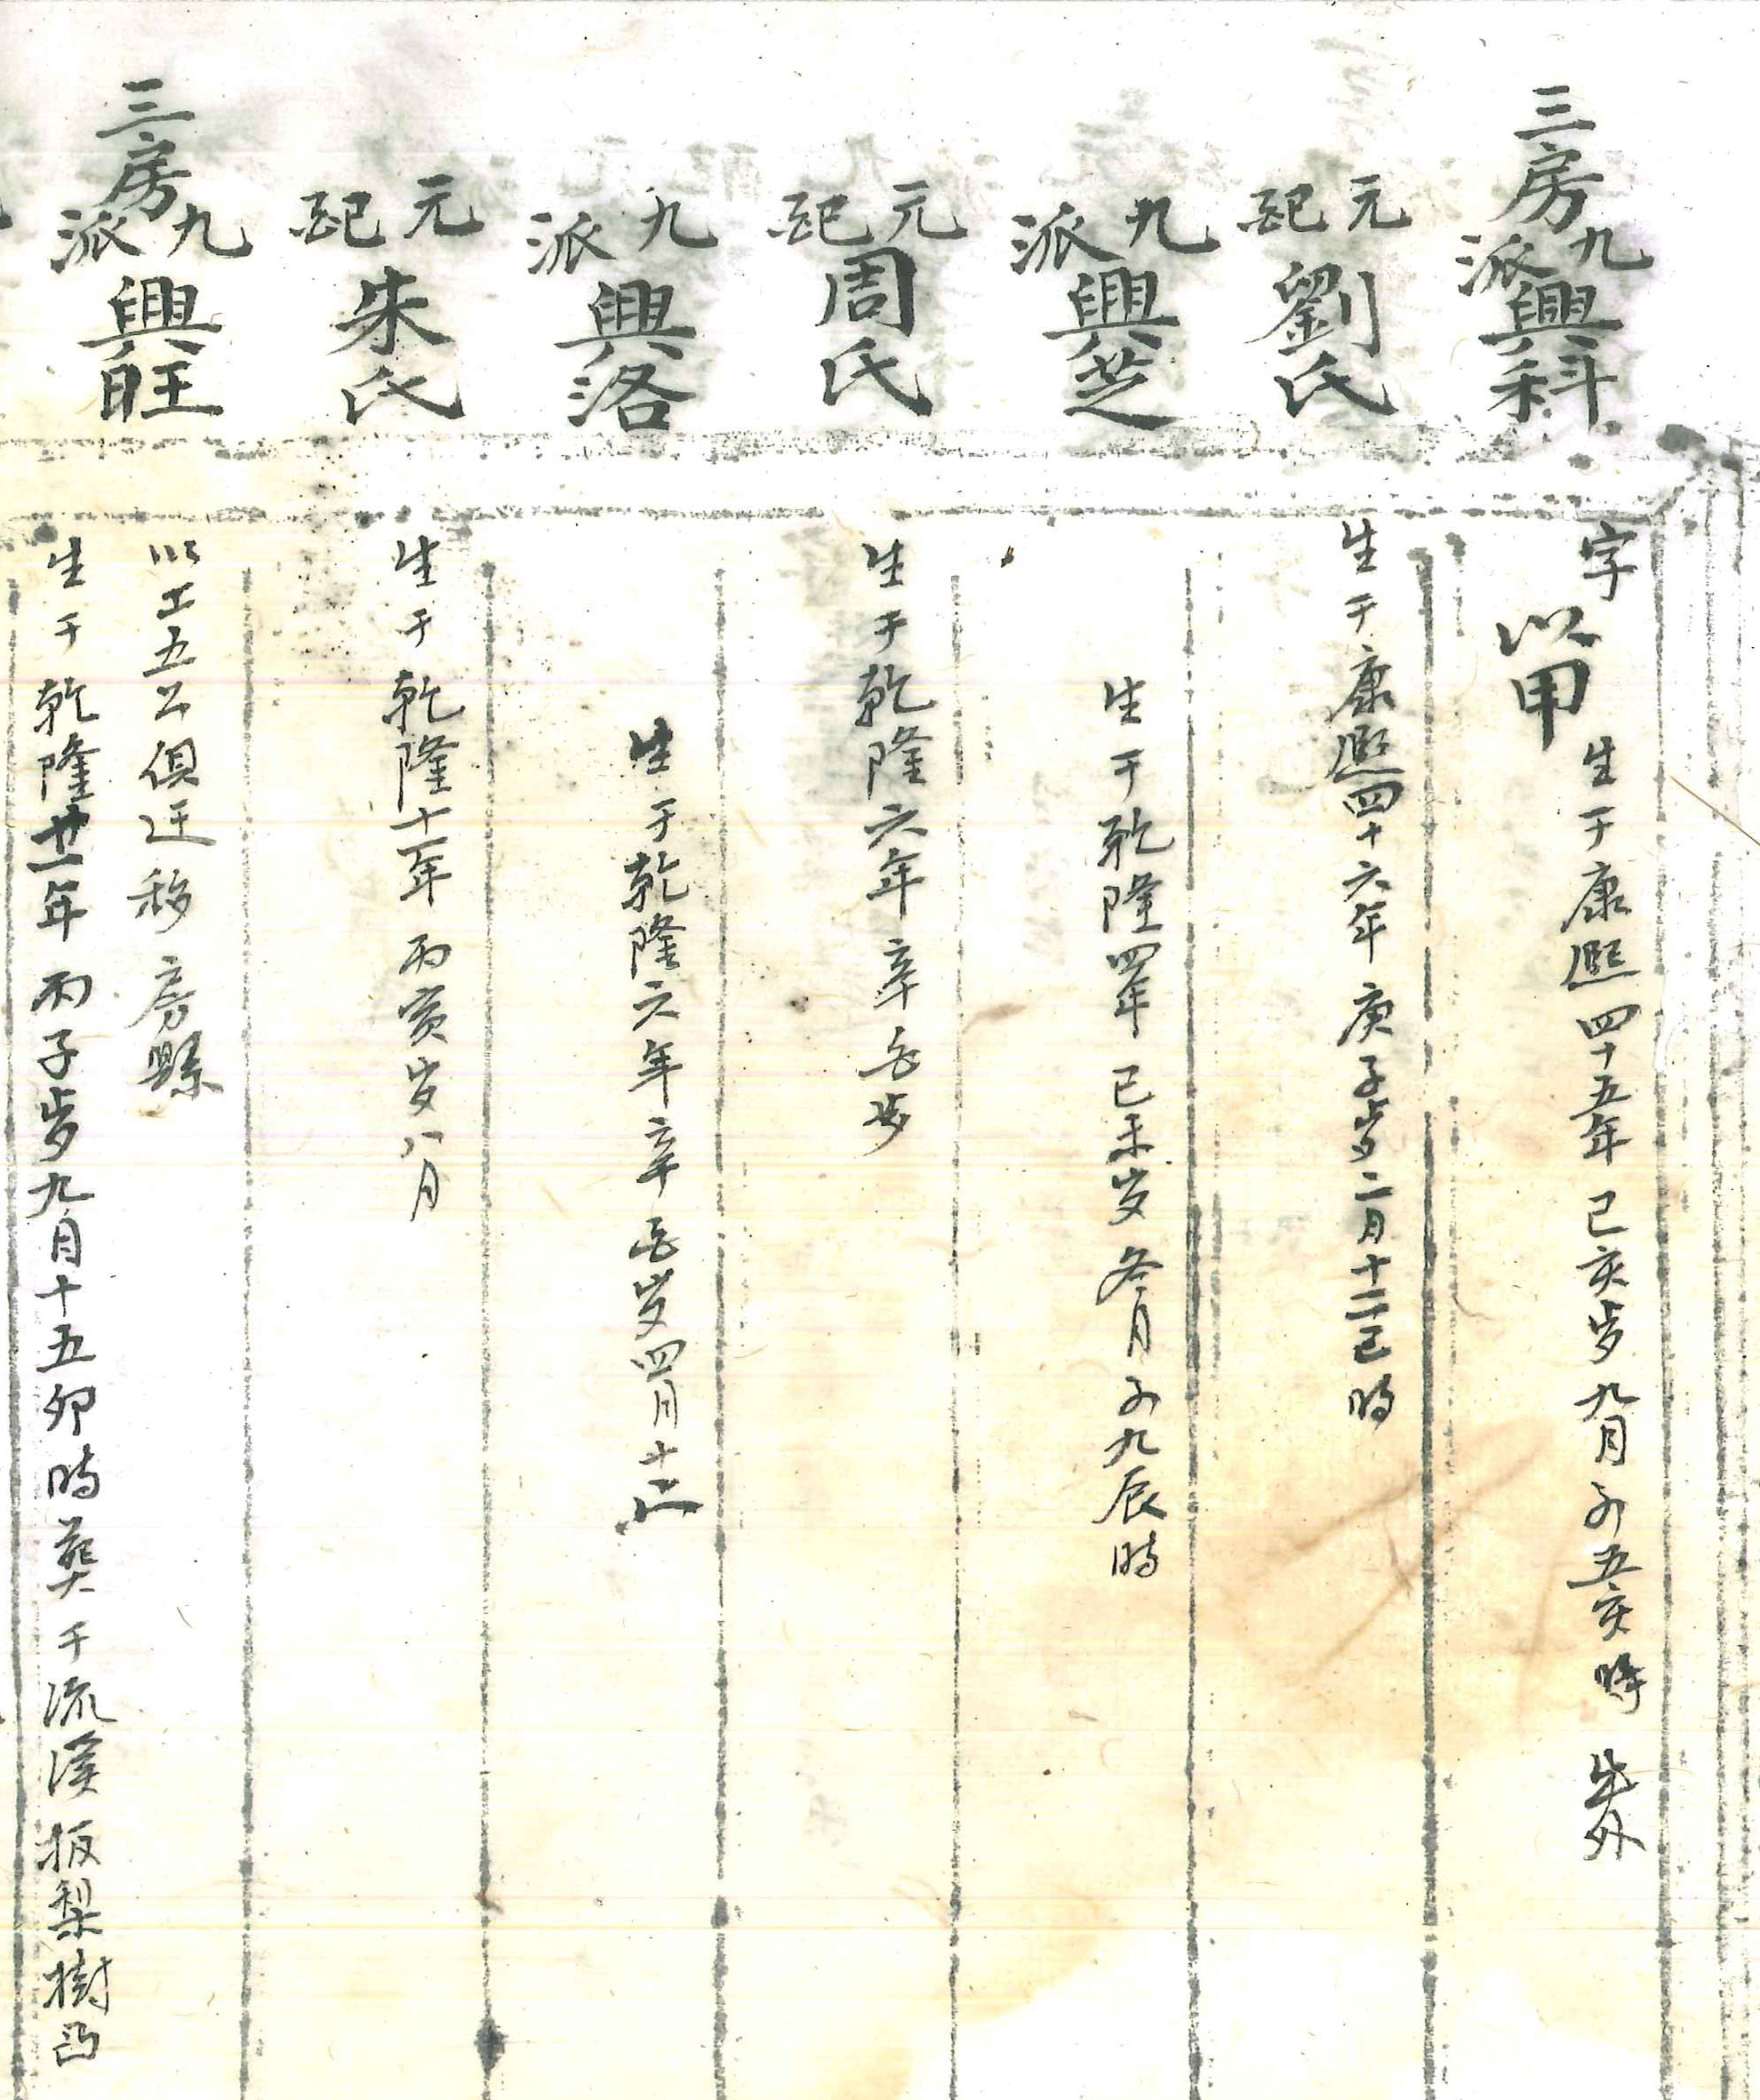 三房九派興科
字以甲 生于康熙四十五年己亥歲九月初五亥時 生外
元配劉氏
生于康熙四十六年庚子歲二月十二巳時
九派興芝
生于乾隆四年己未岁冬月初九辰時
元配周氏
生于乾隆六年辛酉歲
九派興洛
生于乾隆六年辛酉岁四月十六
元配朱氏
生于乾隆十一年丙寅岁八月
三房九派興旺
以上五公俱迁移房縣
生于乾隆廿一年丙子歲九月十五卯時葬于流溪板梨樹凸